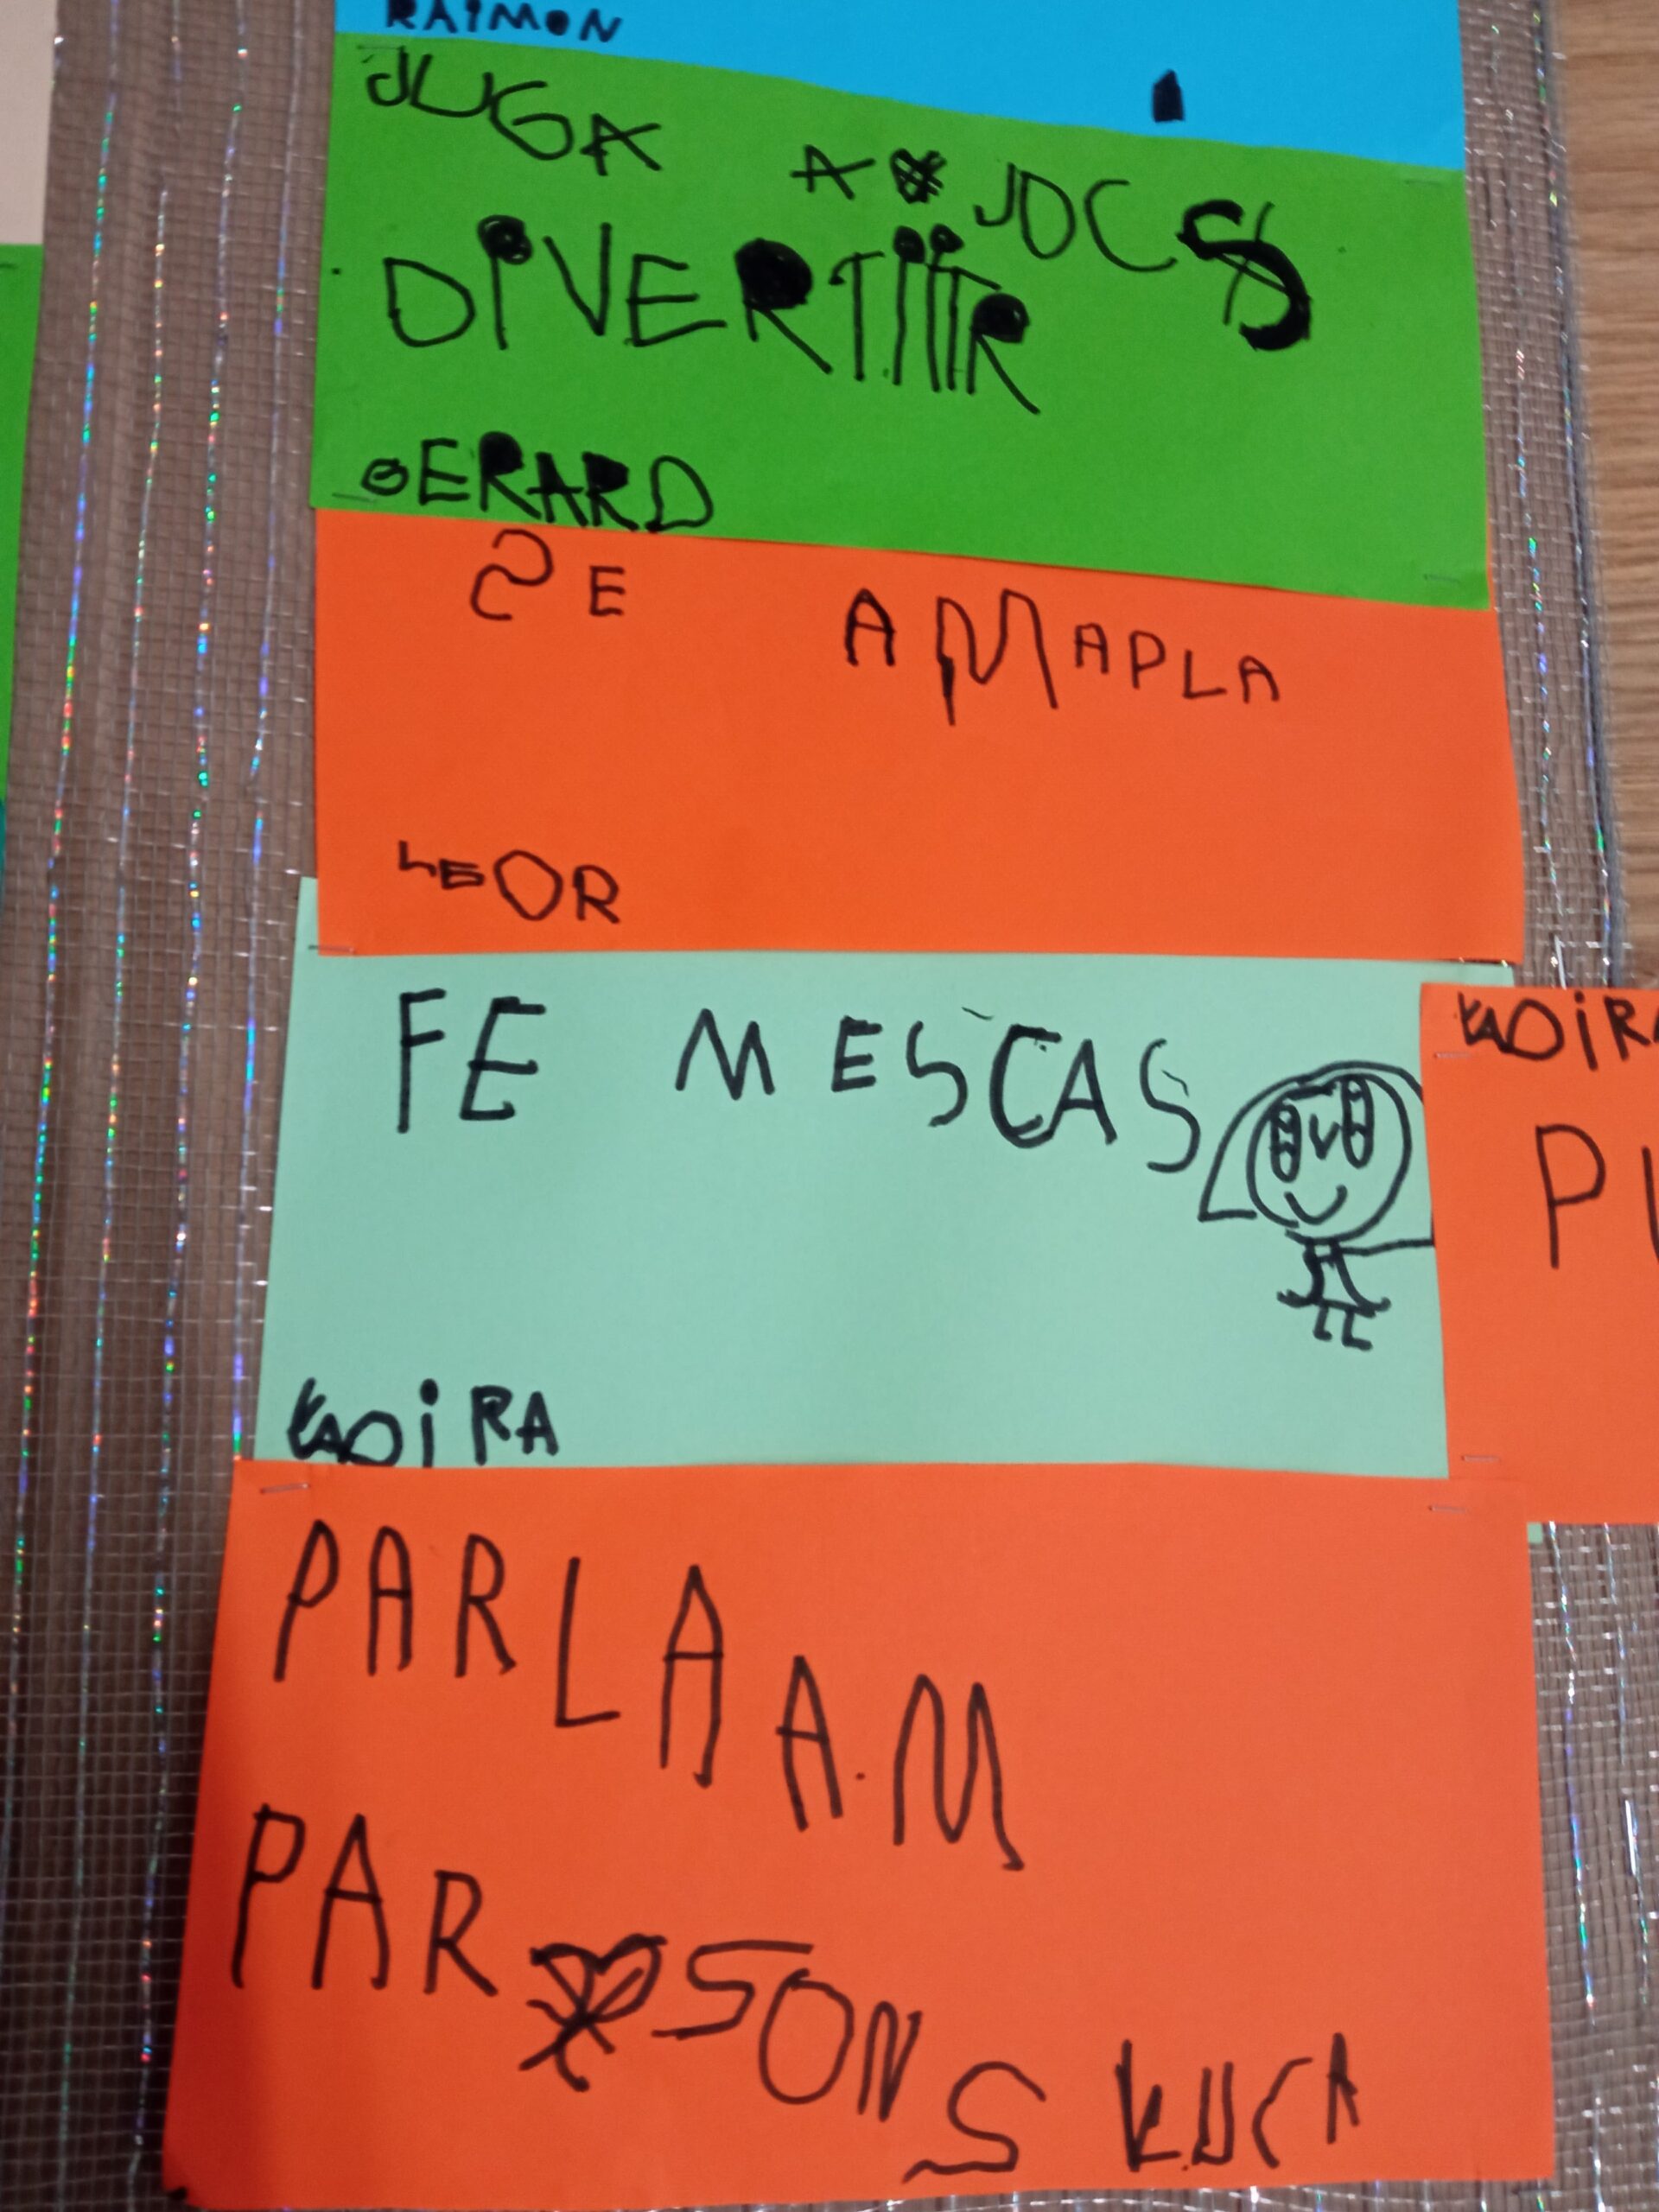 RAiMON
JUGA A JOCS
DiVERTiiR
GERARD
SE AMAPLA
LEOR
FE MESCAS
LAiRA
PARLA AM
PAR SONS LUCA